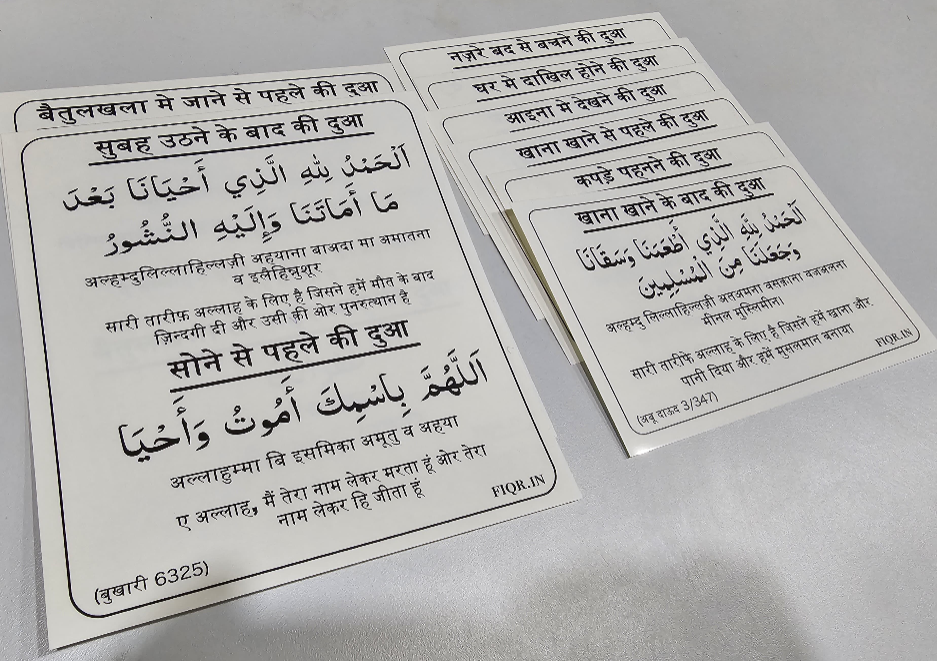 बैतुलखला मे जाने से पहले की दुआ
सुबह उठने के बाद की दुआ
اَلْحَمْدُ لِلّٰهِ الَّذِي أَحْيَانَا بَعْدَ
مَا أَمَاتَنَا وَإِلَيْهِ النُّشُورُ
अल्हम्दुलिल्लाहिल्लज़ी अहयाना बाअदा मा अमातना
व इलैहिन्नशूर
सारी तारीफ़ अल्लाह के लिए है जिसने हमें मौत के बाद
ज़िन्दगी दी और उसी की ओर पुनरुत्थान है
सोने से पहले की दुआ
اَللّٰهُمَّ بِاسْمِكَ أَمُوتُ وَأَحْيَا
अल्लाहुम्मा बि इसमिका अमूतु व अहया
ए अल्लाह, मैं तेरा नाम लेकर मरता हूं ओर तेरा
नाम लेकर हि जीता हूं
FIQR.IN
(बुखारी 6325)
नज़रे बद से बचने की दुआ
घर मे दाखिल होने की दुआ
आइना मे देखने की दुआ
खाना खाने से पहले की दुआ
कपड़े पहनने की दुआ
खाना खाने के बाद की दुआ
اَلْحَمْدُ لِلّٰهِ الَّذِي أَطْعَمَنَا وَسَقَانَا
وَجَعَلَنَا مِنَ الْمُسْلِمِينَ
अल्हम्दु लिल्लाहिल्लज़ी अतअमना वसक़ाना वजअलना
मीनल मुस्लिमीना
सारी तारीफें अल्लाह के लिए है जिसने हमें खाना और
पानी दिया और हमें मुसलमान बनाया
FIQR.IN
(अबू दाऊद 3/347)